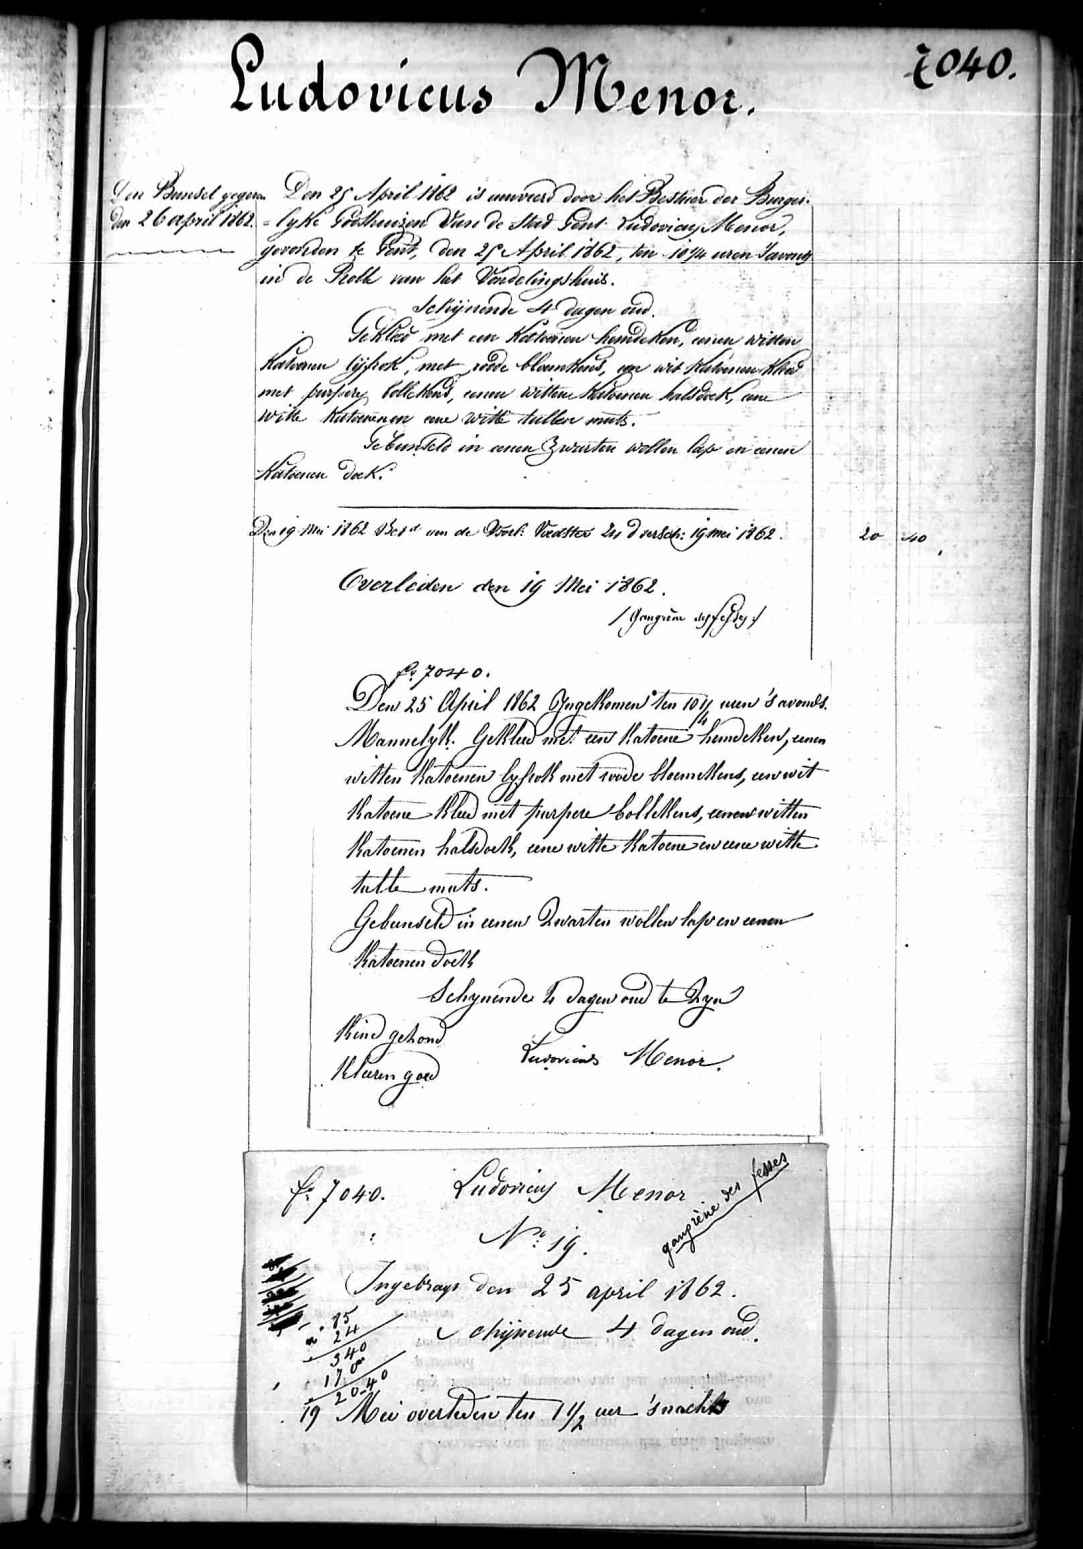 7040.
Ludovicus Menor.
Den Bunsel gegeven
den 26 april 1862.
Den 25 April 1862 is aanveerd door het Bestuer der Burger-
=lyke Godshuizen Van de Stad Gent Ludovicus Menor,
gevonden te Gent, den 25 April 1862, ten 10 1/4 uren 's avonds
in de Rolle van het Vondelingshuis.
Schijnende 4 dagen oud.
Gekleed met een Katoenen hemdeken, eenen witten
Katoenen lijfrok, met roode bloemkens, een wit Katoenen Kleed
met purpere bollekens, eenen witten Katoenen halsdoek, eene
witte Katoenen en eene witte tullen muts.
Gebunseld in eenen Zwarten wollen lap en eenen
Katoenen doek.
Den 19 Mei 1862 Bet.d aan de Voedster 24 d versch: 19 mei 1862.
20 40
Overleden den 19 Mei 1862.
/ Gangrène des fesses /
f.o 7040.
Den 25 April 1862 Ingekomen ten 10 1/4 uren 's avonds.
Mannelyk. Gekleed met een Katoene hemdeken, eenen
witten Katoenen lyfrok met roode bloemekens, een wit
Katoene Kleed met purpere bollekens, eenen witten
Katoenen halsdoek, eene witte Katoene en eene witte
tulle muts.
Gebunseld in eenen Zwarten wollen lap en eenen
Katoenen doek
Schynende 4 dagen oud te Zyn
Kind gezond
Ludovicus Menor.
Kleeren goed
f.o 7040. Ludovicus Menor
gangrène des fesses
N.o 19.
Ingebragt den 25 april 1862.
Schijnende 4 dagen oud.
à 85
24
340
170
20-40
19 Mei overleden ten 1 1/2 uer 's nachts